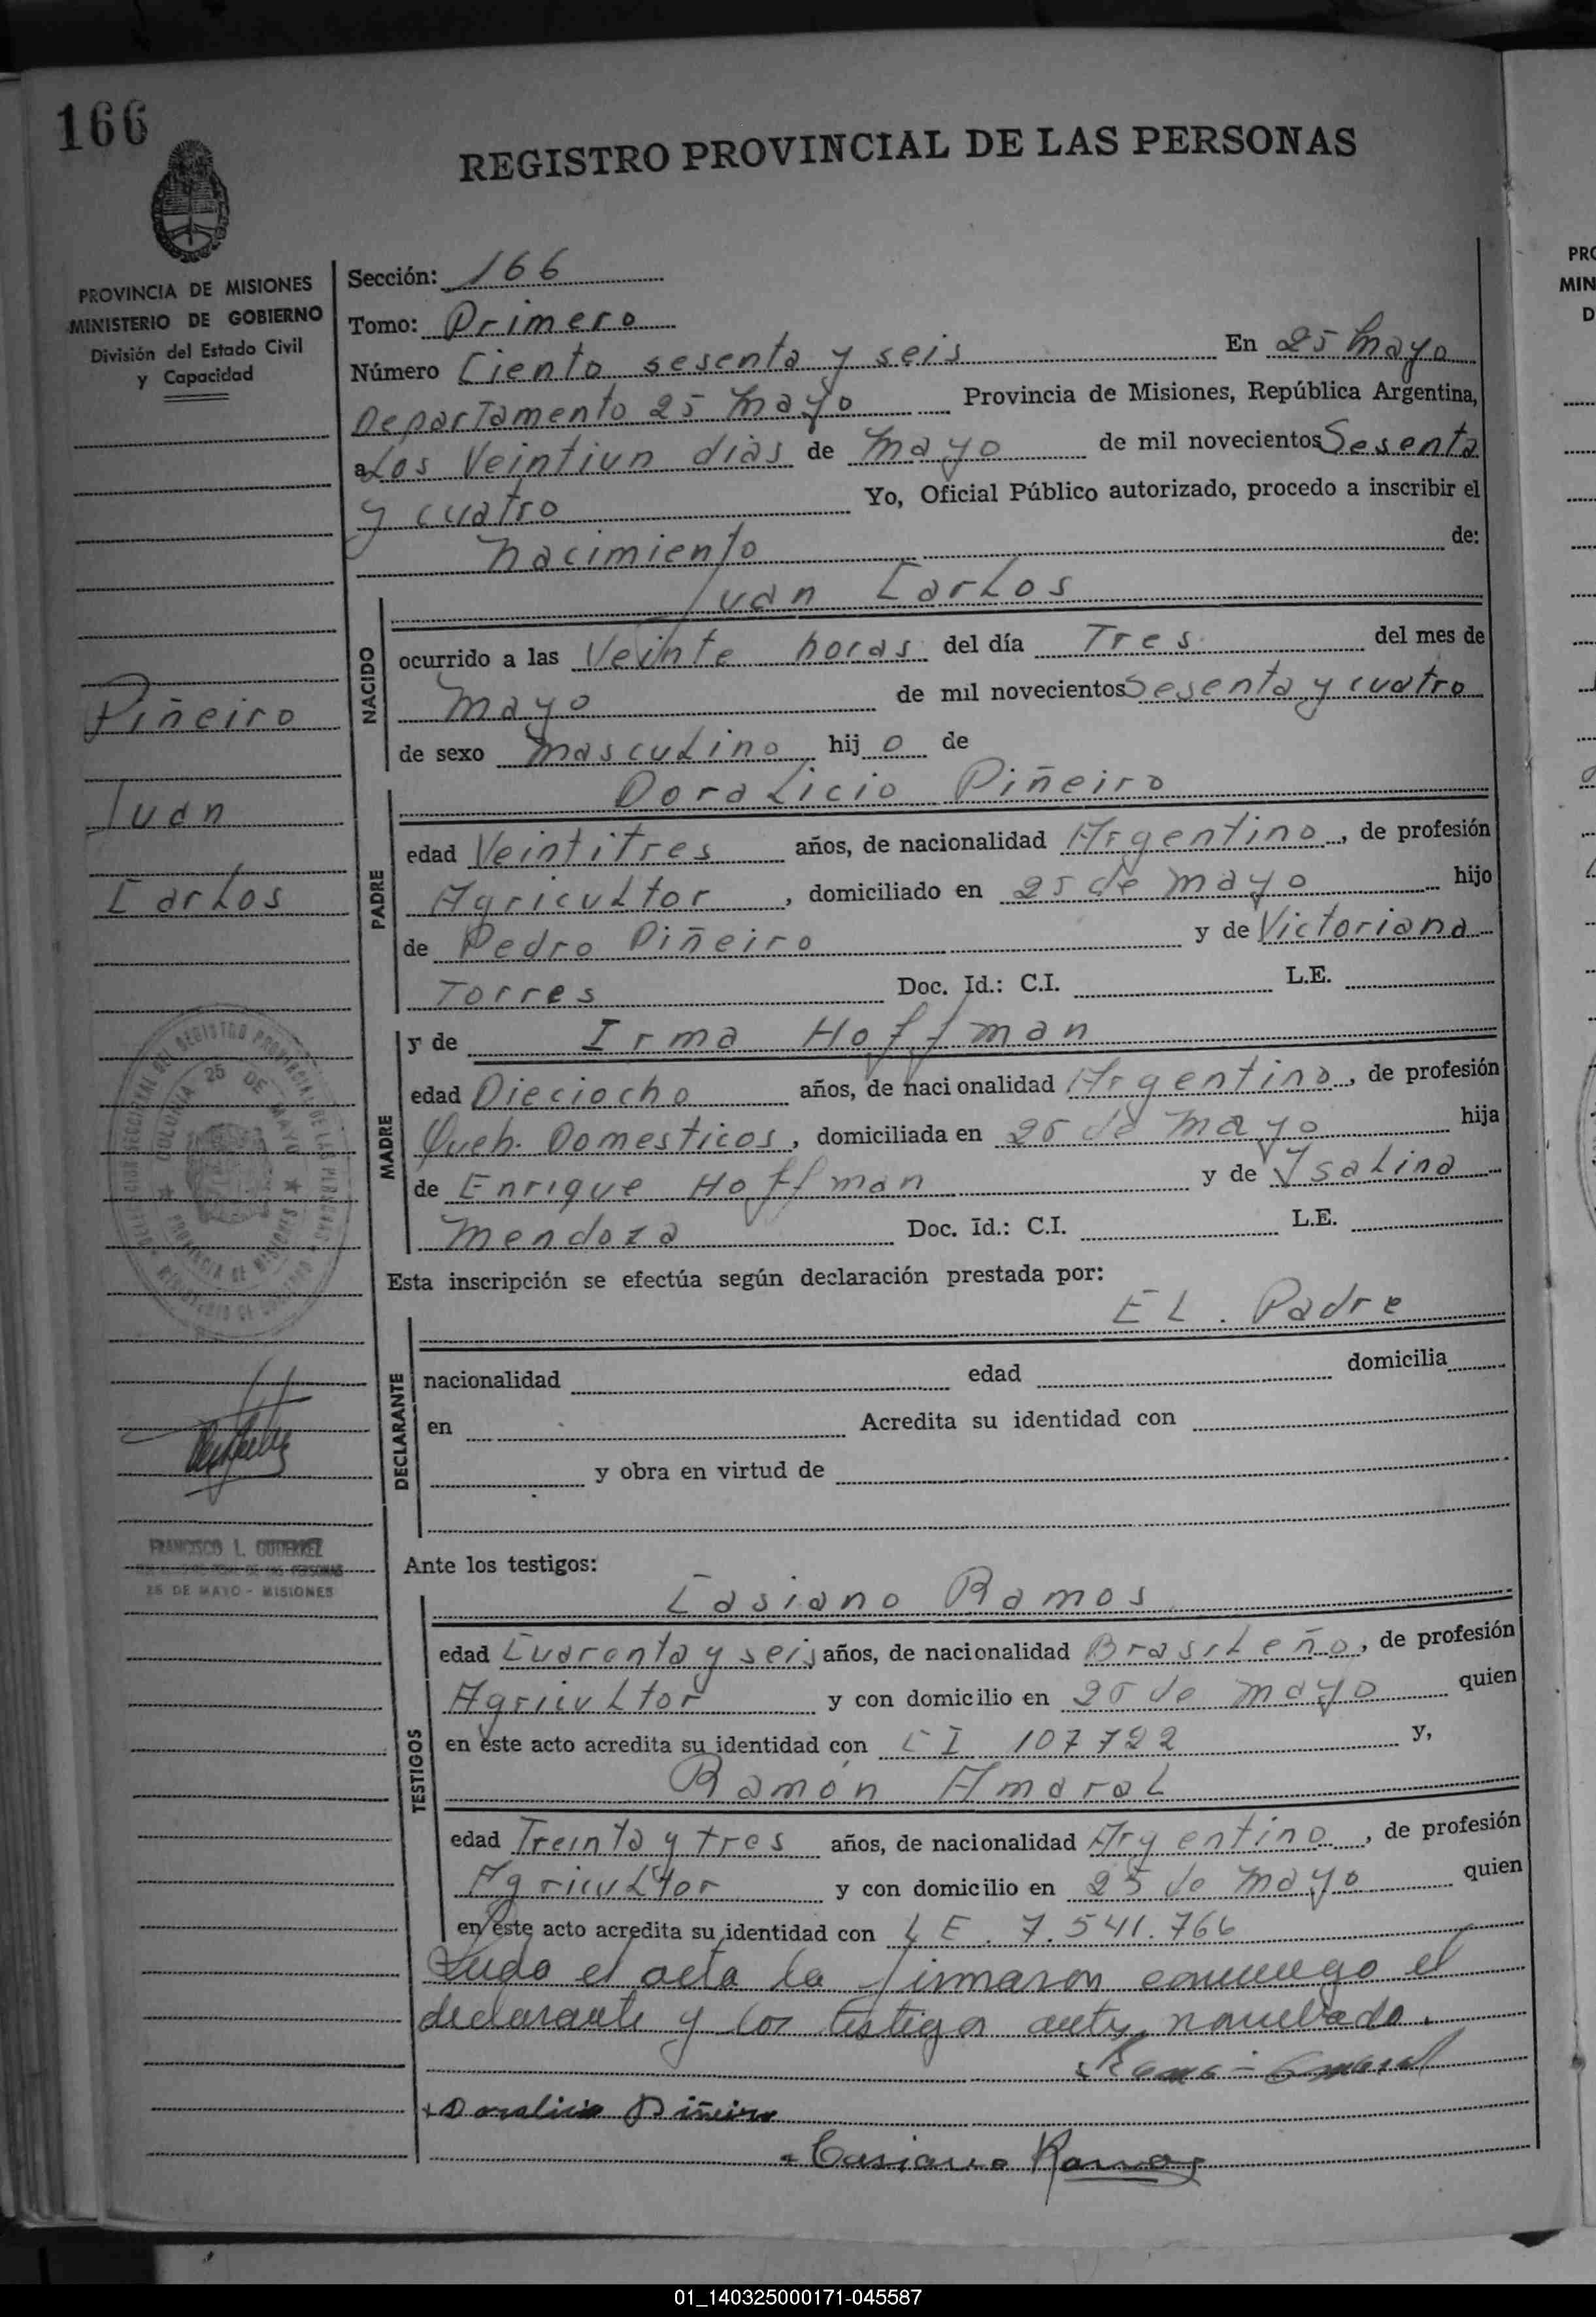 166
REGISTRO PROVINCIAL DE LAS PERSONAS
PROVINCIA DE MISIONES
MINISTERIO DE GOBIERNO
División del Estado Civil
y Capacidad
Sección: 166
Tomo: Primero
Número Ciento sesenta y seis En 25 Mayo
Departamento 25 Mayo Provincia de Misiones, República Argentina,
a Los Veintiun dias de Mayo de mil novecientos Sesenta
y cuatro Yo, Oficial Público autorizado, procedo a inscribir el
nacimiento de:
Juan Carlos
NACIDO
ocurrido a las Veinte horas del día Tres del mes de
Mayo de mil novecientos Sesenta y cuatro
de sexo Masculino hij o de
Piñeiro
Juan
Carlos
Doralicio Piñeiro
PADRE
edad Veintitres años, de nacionalidad Argentino, de profesión
Agricultor, domiciliado en 25 de Mayo hijo
de Pedro Piñeiro y de Victoriana
Torres Doc. Id.: C.I. L.E.
y de Irma Hoffman
MADRE
edad Dieciocho años, de naci onalidad Argentina, de profesión
Queh. Domesticos, domiciliada en 25 de Mayo hija
de Enrique Hoffman y de Ysalina
Mendoza Doc. Id.: C.I. L.E.
COLONIA 25 DE MAYO
PROVINCIA DE MISIONES
Esta inscripción se efectúa según declaración prestada por:
EL. Padre
DECLARANTE
nacionalidad edad domicilia
en Acredita su identidad con
y obra en virtud de
FRANCISCO L. GUTIERREZ
DE LAS PERSONAS
25 DE MAYO - MISIONES
Ante los testigos:
Casiano Ramos
TESTIGOS
edad Cuarenta y seis años, de nacionalidad Brasileño, de profesión
Agricultor y con domicilio en 25 de Mayo quien
en este acto acredita su identidad con C I 107722 y,
Ramón Amaral
edad Treinta y tres años, de nacionalidad Argentino, de profesión
Agricultor y con domicilio en 25 de Mayo quien
en este acto acredita su identidad con L E. 7.541.766
el acta la firmaron conmigo el
declarante y los testigos
Doralicio Piñeiro
Casiano Ramos
01_140325000171-045587